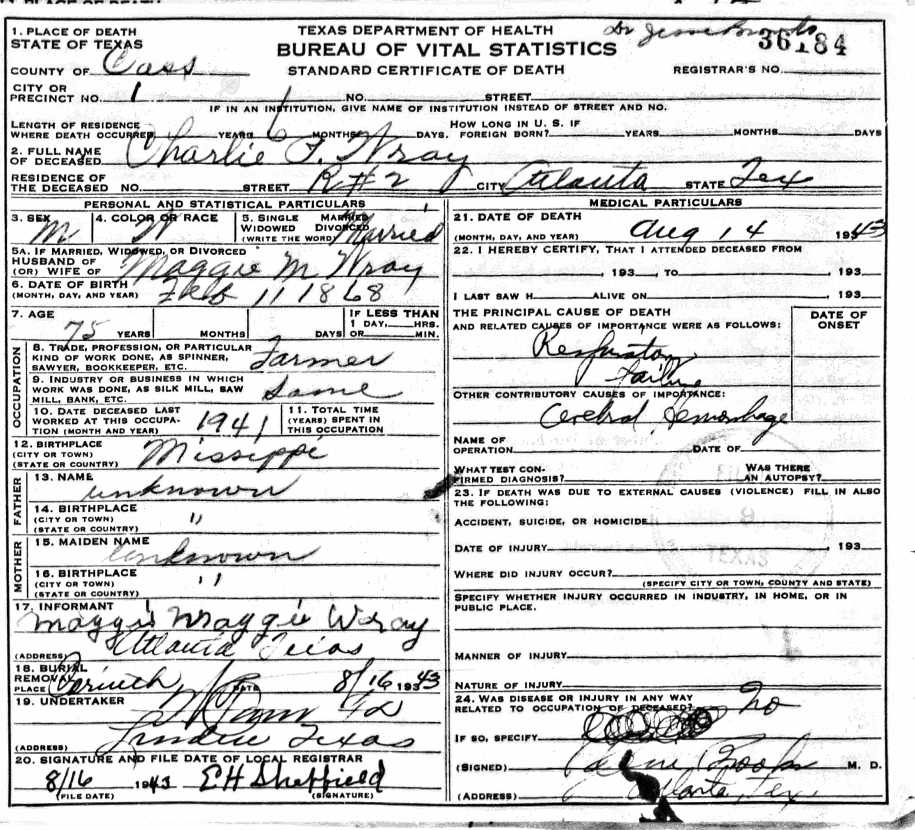 1. PLACE OF DEATH
STATE OF TEXAS
TEXAS DEPARTMENT OF HEALTH
BUREAU OF VITAL STATISTICS
STANDARD CERTIFICATE OF DEATH
Dr
36184
COUNTY OF Cass
REGISTRAR'S NO.
CITY OR
PRECINCT NO. 1 NO. STREET
IF IN AN INSTITUTION, GIVE NAME OF INSTITUTION INSTEAD OF STREET AND NO.
LENGTH OF RESIDENCE
WHERE DEATH OCCURRED YEARS 6 MONTHS DAYS. HOW LONG IN U. S. IF FOREIGN BORN? YEARS MONTHS DAYS
2. FULL NAME
OF DECEASED Charlie F. Wray
RESIDENCE OF
THE DECEASED NO. STREET R#2 CITY Atlanta STATE Tex
PERSONAL AND STATISTICAL PARTICULARS
3. SEX M
4. COLOR OR RACE W
5. SINGLE MARRIED
WIDOWED DIVORCED
(WRITE THE WORD) Married
5A. IF MARRIED, WIDOWED, OR DIVORCED
HUSBAND OF
(OR) WIFE OF Maggie M Wray
6. DATE OF BIRTH
(MONTH, DAY, AND YEAR) Feb 11 1868
7. AGE
75 YEARS MONTHS DAYS
IF LESS THAN
1 DAY, HRS.
OR MIN.
OCCUPATION
8. TRADE, PROFESSION, OR PARTICULAR
KIND OF WORK DONE, AS SPINNER,
SAWYER, BOOKKEEPER, ETC. Farmer
9. INDUSTRY OR BUSINESS IN WHICH
WORK WAS DONE, AS SILK MILL, SAW
MILL, BANK, ETC. Same
10. DATE DECEASED LAST
WORKED AT THIS OCCUPA-
TION (MONTH AND YEAR) 1941
11. TOTAL TIME
(YEARS) SPENT IN
THIS OCCUPATION
12. BIRTHPLACE
(CITY OR TOWN)
(STATE OR COUNTRY) Missippi
FATHER
13. NAME
unknown
14. BIRTHPLACE
(CITY OR TOWN) "
(STATE OR COUNTRY)
MOTHER
15. MAIDEN NAME
unknown
16. BIRTHPLACE
(CITY OR TOWN) "
(STATE OR COUNTRY)
17. INFORMANT
Maggie Wray
(ADDRESS) Atlanta Texas
18. BURIAL
REMOVAL
PLACE Corinth DATE 8/16 1943
19. UNDERTAKER
(ADDRESS) Texas
20. SIGNATURE AND FILE DATE OF LOCAL REGISTRAR
8/16 1943 EH Sheffield
(FILE DATE) (SIGNATURE)
MEDICAL PARTICULARS
21. DATE OF DEATH
(MONTH, DAY, AND YEAR) Aug 14 1943
22. I HEREBY CERTIFY, THAT I ATTENDED DECEASED FROM
, 193 , TO , 193
I LAST SAW H ALIVE ON , 193
THE PRINCIPAL CAUSE OF DEATH
AND RELATED CAUSES OF IMPORTANCE WERE AS FOLLOWS:
DATE OF
ONSET
Respiratory
Failure
OTHER CONTRIBUTORY CAUSES OF IMPORTANCE:
Cerebral Hemorrhage
NAME OF
OPERATION DATE OF
WHAT TEST CON-
FIRMED DIAGNOSIS? WAS THERE AN AUTOPSY?
23. IF DEATH WAS DUE TO EXTERNAL CAUSES (VIOLENCE) FILL IN ALSO
THE FOLLOWING:
ACCIDENT, SUICIDE, OR HOMICIDE
DATE OF INJURY , 193
TEXAS
WHERE DID INJURY OCCUR?
(SPECIFY CITY OR TOWN, COUNTY AND STATE)
SPECIFY WHETHER INJURY OCCURRED IN INDUSTRY, IN HOME, OR IN
PUBLIC PLACE.
MANNER OF INJURY
NATURE OF INJURY
24. WAS DISEASE OR INJURY IN ANY WAY
RELATED TO OCCUPATION OF DECEASED? no
IF SO, SPECIFY
(SIGNED) M. D.
(ADDRESS) Atlanta, Tex